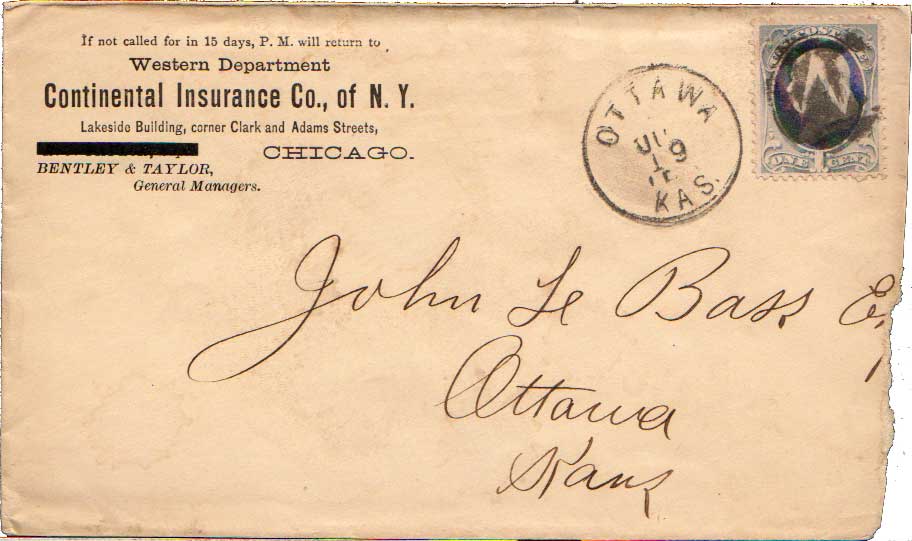 If not called for in 15 days, P. M. will return to
Western Department
Continental Insurance Co., of N. Y.
Lakeside Building, corner Clark and Adams Streets,
CHICAGO.
BENTLEY & TAYLOR,
General Managers.
OTTAWA
19
KAS.
ONE CENT
John Le Bass
Ottawa
Kans